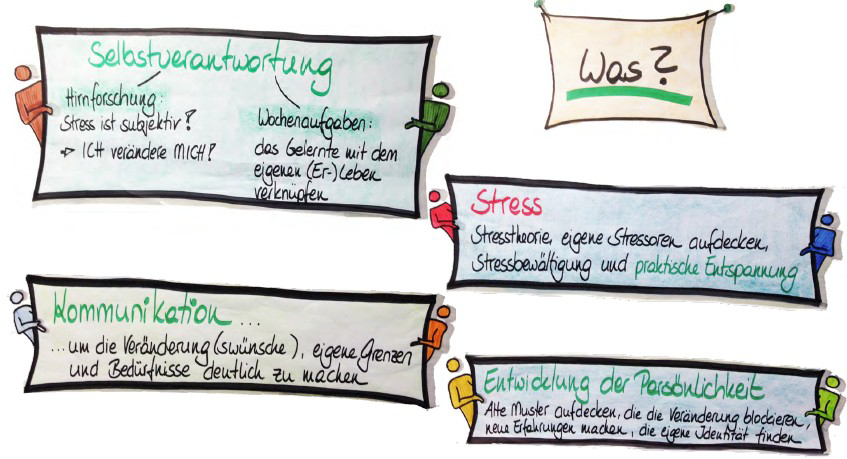 Was?
Selbstverantwortung
Hirnforschung:
Stress ist subjektiv!
→ ICH verändere MICH!
Wochenaufgaben:
das Gelernte mit dem
eigenen (Er-)Leben
verknüpfen
Stress
Stresstheorie, eigene Stressoren aufdecken,
Stressbewältigung und praktische Entspannung
Kommunikation ...
... um die Veränderung(swünsche), eigene Grenzen
und Bedürfnisse deutlich zu machen
Entwicklung der Persönlichkeit
Alte Muster aufdecken, die die Veränderung blockieren,
neue Erfahrungen machen, die eigene Identität finden